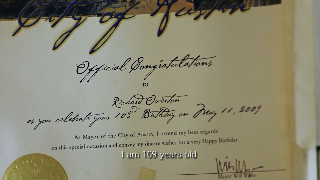 City of Austin
Official Congratulations
to
Richard Overton
as you celebrate your 103rd Birthday on May 11, 2009
As Mayor of the City of Austin, I extend my best regards
on this special occasion and convey my sincere wishes for a very Happy Birthday.
I am 109 years old
Mayor Will